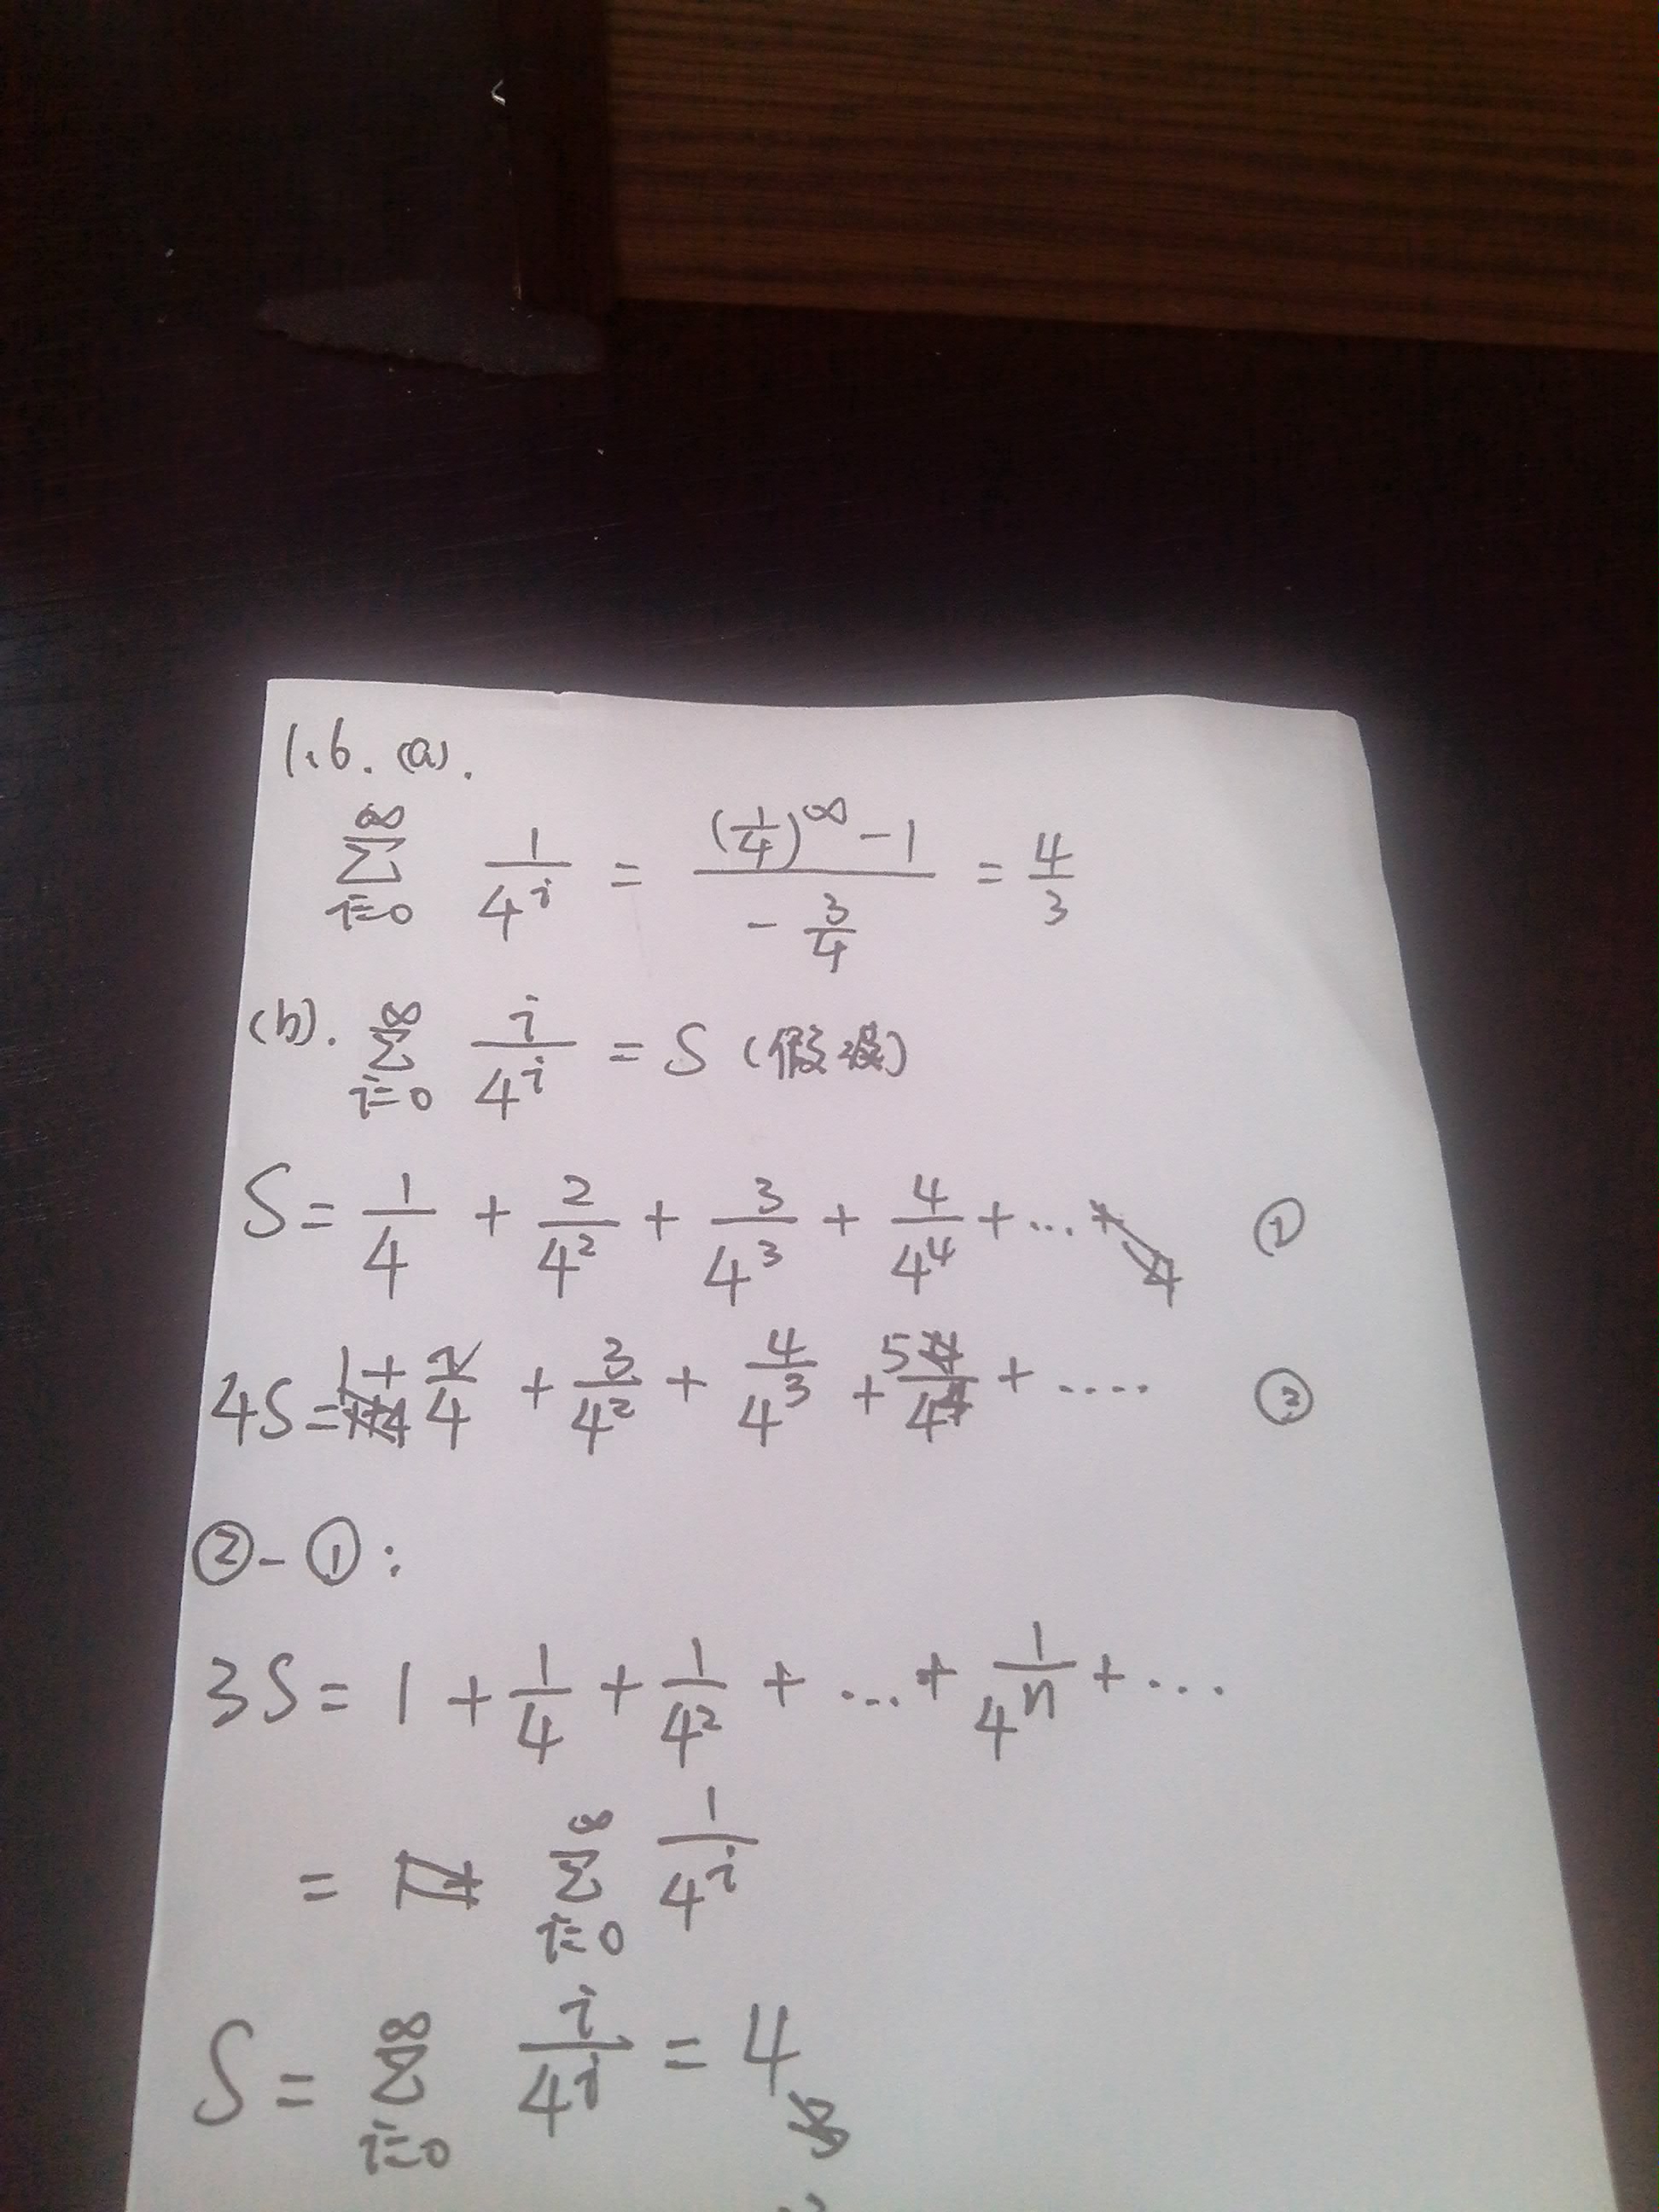 1.6. (a).
∞∑i=0 1/4^i = ((1/4)^∞ - 1)/(-3/4) = 4/3
(b). ∞∑i=0 i/4^i = S (假设)
S = 1/4 + 2/4^2 + 3/4^3 + 4/4^4 + ... ①
4S = 1 + 2/4 + 3/4^2 + 4/4^3 + 5/4^4 + .... ②
② - ① :
3S = 1 + 1/4 + 1/4^2 + ... + 1/4^n + ...
= ∞∑i=0 1/4^i
S = ∞∑i=0 i/4^i = 4